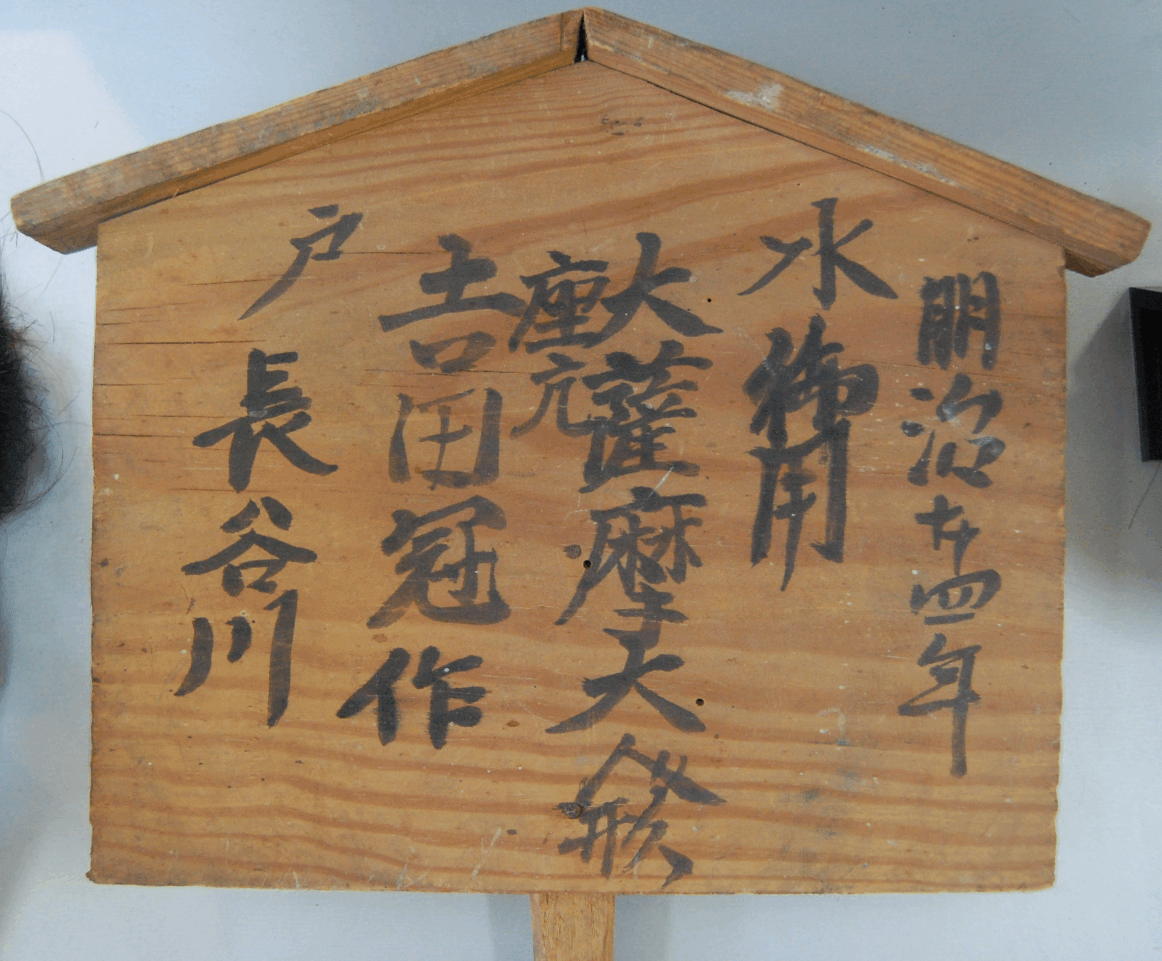 明治廿四年
水御用
大薩摩大人形
座元
吉田冠作
戸長谷川